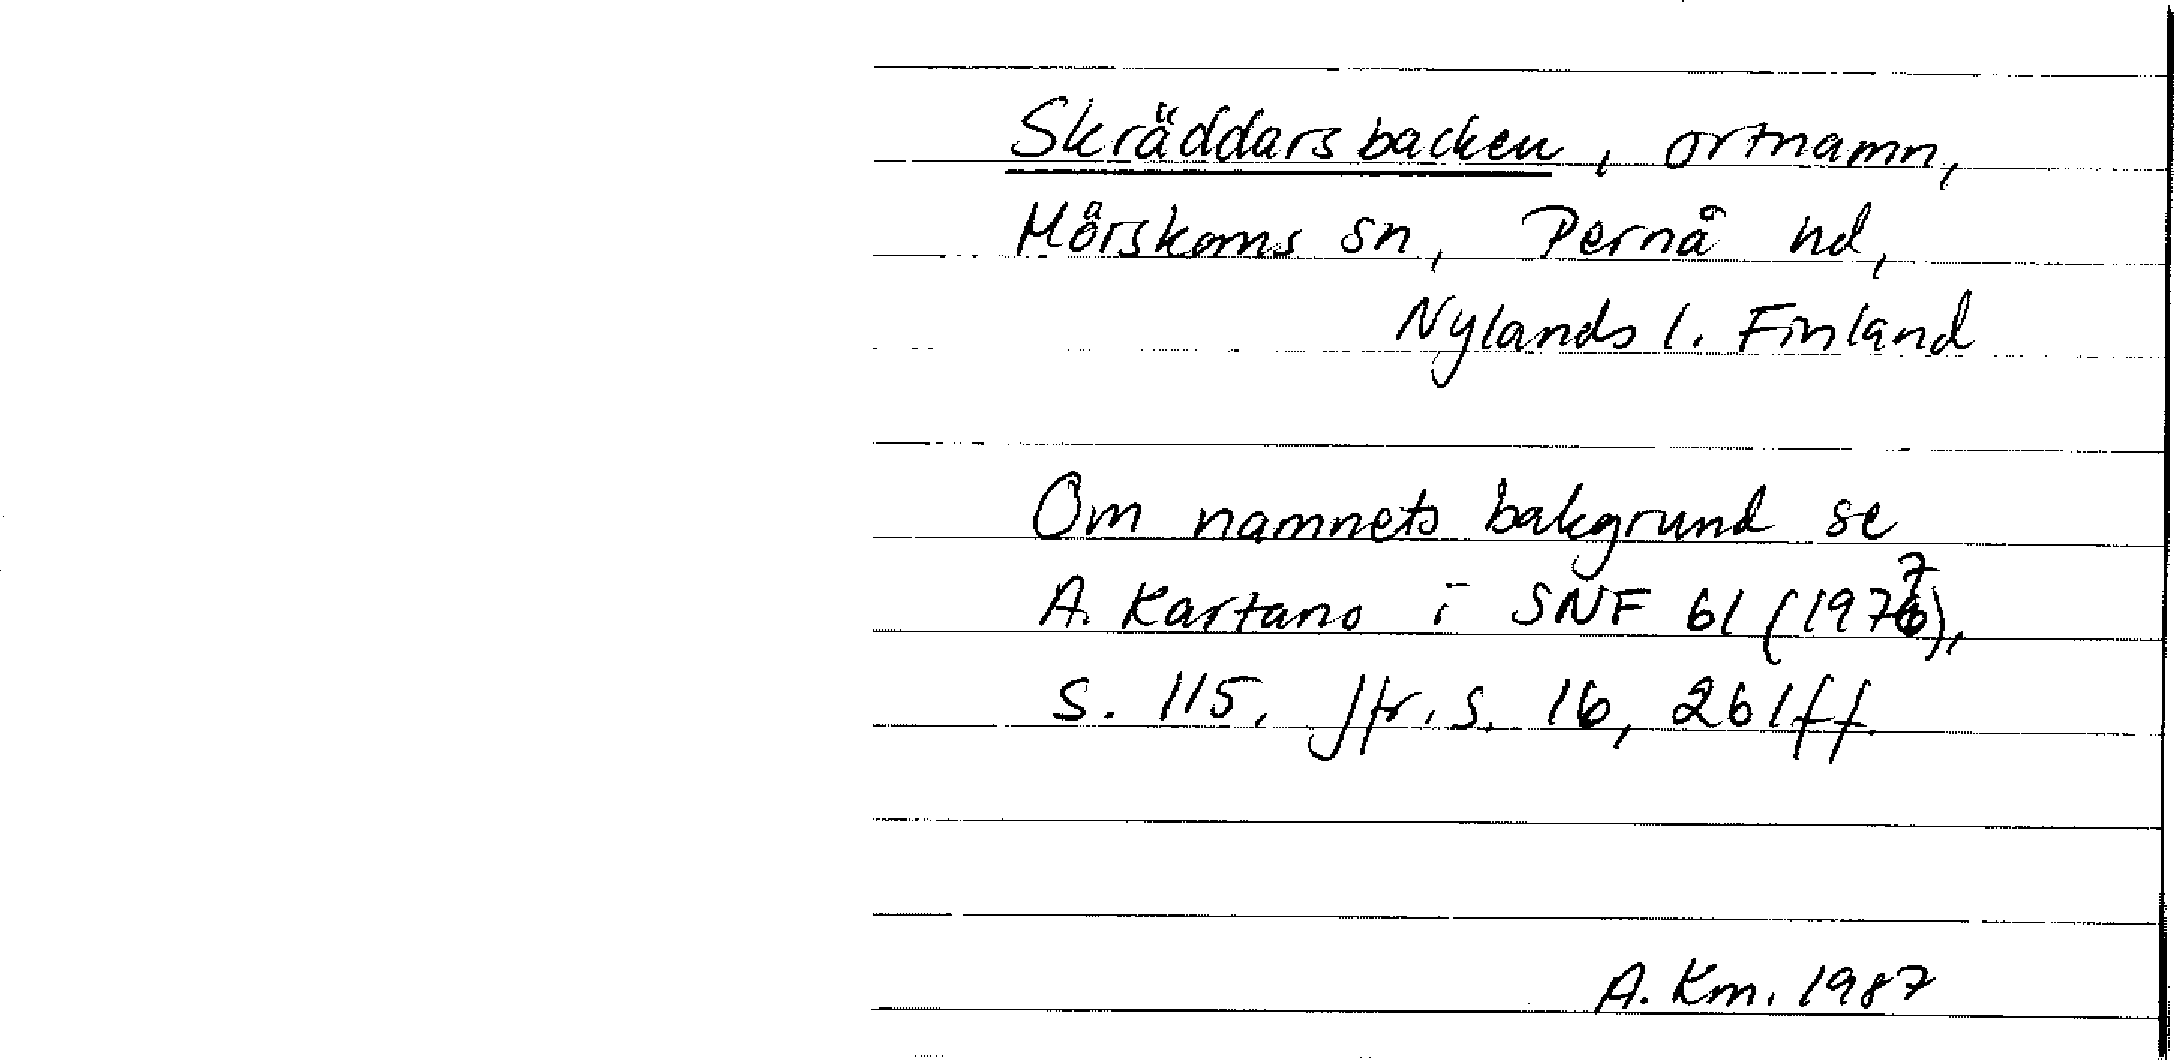 Skräddarsbacken, ortnamn,
Mörskoms sn, Pernå nd,
Nylands l. Finland
Om namnets bakgrund se
A. Kartano i SNF 61 (1977),
s. 115. Jfr. s. 16, 261ff.
A. Km. 1987